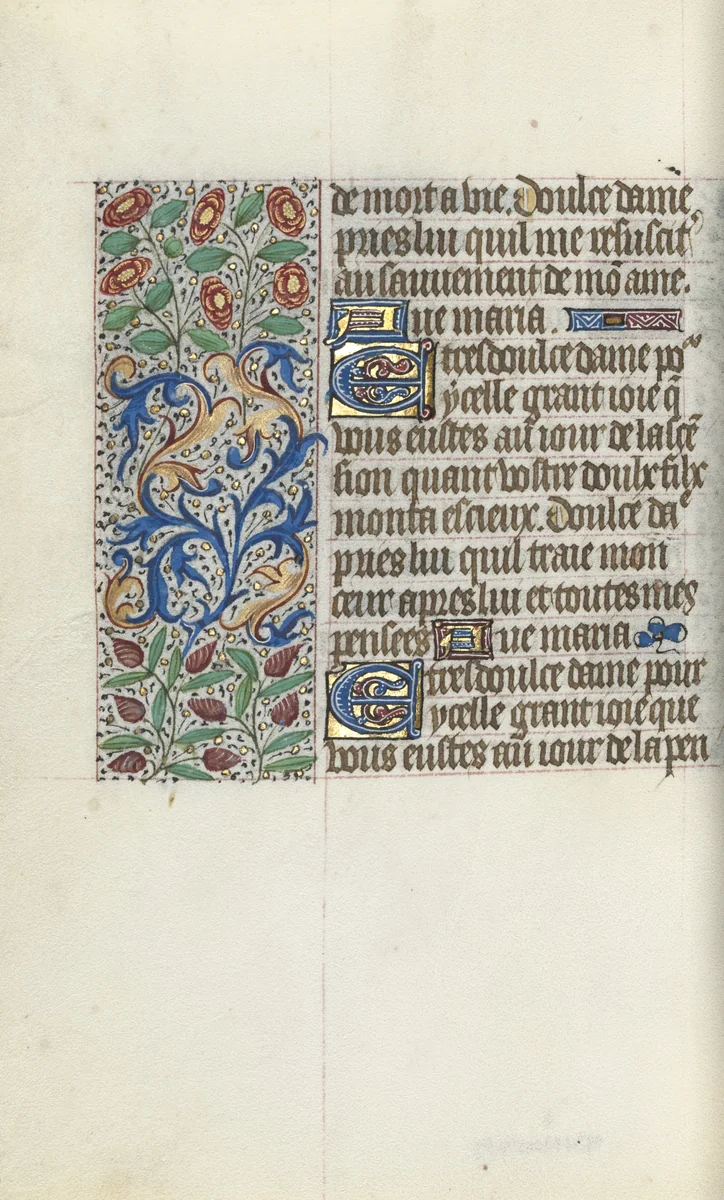 de mort a vie. Doulce dame
pries lui quil me resuscit'
au sauuement de mō ame.
Aue maria.
E tresdoulce dame po᷑
ycelle grant ioie q̄
vous eustes au iour de lascē
sion quant vostre doulx filx
monta es cieux. Doulce daᵉ
pries lui quil traie mon
ceur apres lui et toutes mes
pensees Aue maria
E tresdoulce dame pour
ycelle grant ioie que
vous eustes au iour de la pen